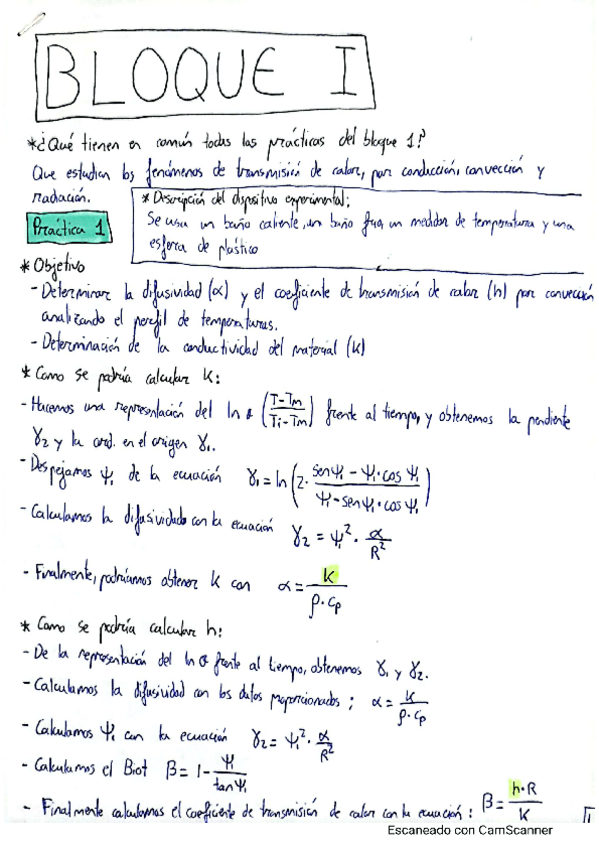 BLOQUE I
*¿Qué tienen en común todas las prácticas del bloque 1?
Que estudian los fenómenos de transmisión de calor, por conducción, convección y
radiación.
* Descripción del dispositivo experimental:
Se usa un baño caliente, un baño frío, un medidor de temperatura y una
esfera de plástico
Práctica 1
* Objetivo
- Determinar la difusividad (α) y el coeficiente de transmisión de calor (h) por convección
analizando el perfil de temperaturas.
- Determinación de la conductividad del material (K)
* Como se podría calcular K:
- Hacemos una representación del ln (T-Tm / Ti-Tm) frente al tiempo, y obtenemos la pendiente
γ2 y la ord. en el origen γ1.
- Despejamos Ψ1 de la ecuación γ1 = ln (2· senΨ1 - Ψ1·cos Ψ1 / Ψ1 - senΨ1·cos Ψ1)
- Calculamos la difusividad con la ecuación γ2 = Ψ1² · α / R²
- Finalmente, podríamos obtener K con α = K / ρ·cp
* Como se podría calcular h:
- De la representación del ln θ frente al tiempo, obtenemos γ1 y γ2.
- Calculamos la difusividad con los datos proporcionados; α = K / ρ·cp
- Calculamos Ψ1 con la ecuación γ2 = Ψ1² · α / R²
- Calculamos el Biot β = 1 - Ψ1 / tanΨ1
- Finalmente calculamos el coeficiente de transmisión de calor con la ecuación: β = h·R / K
Escaneado con CamScanner